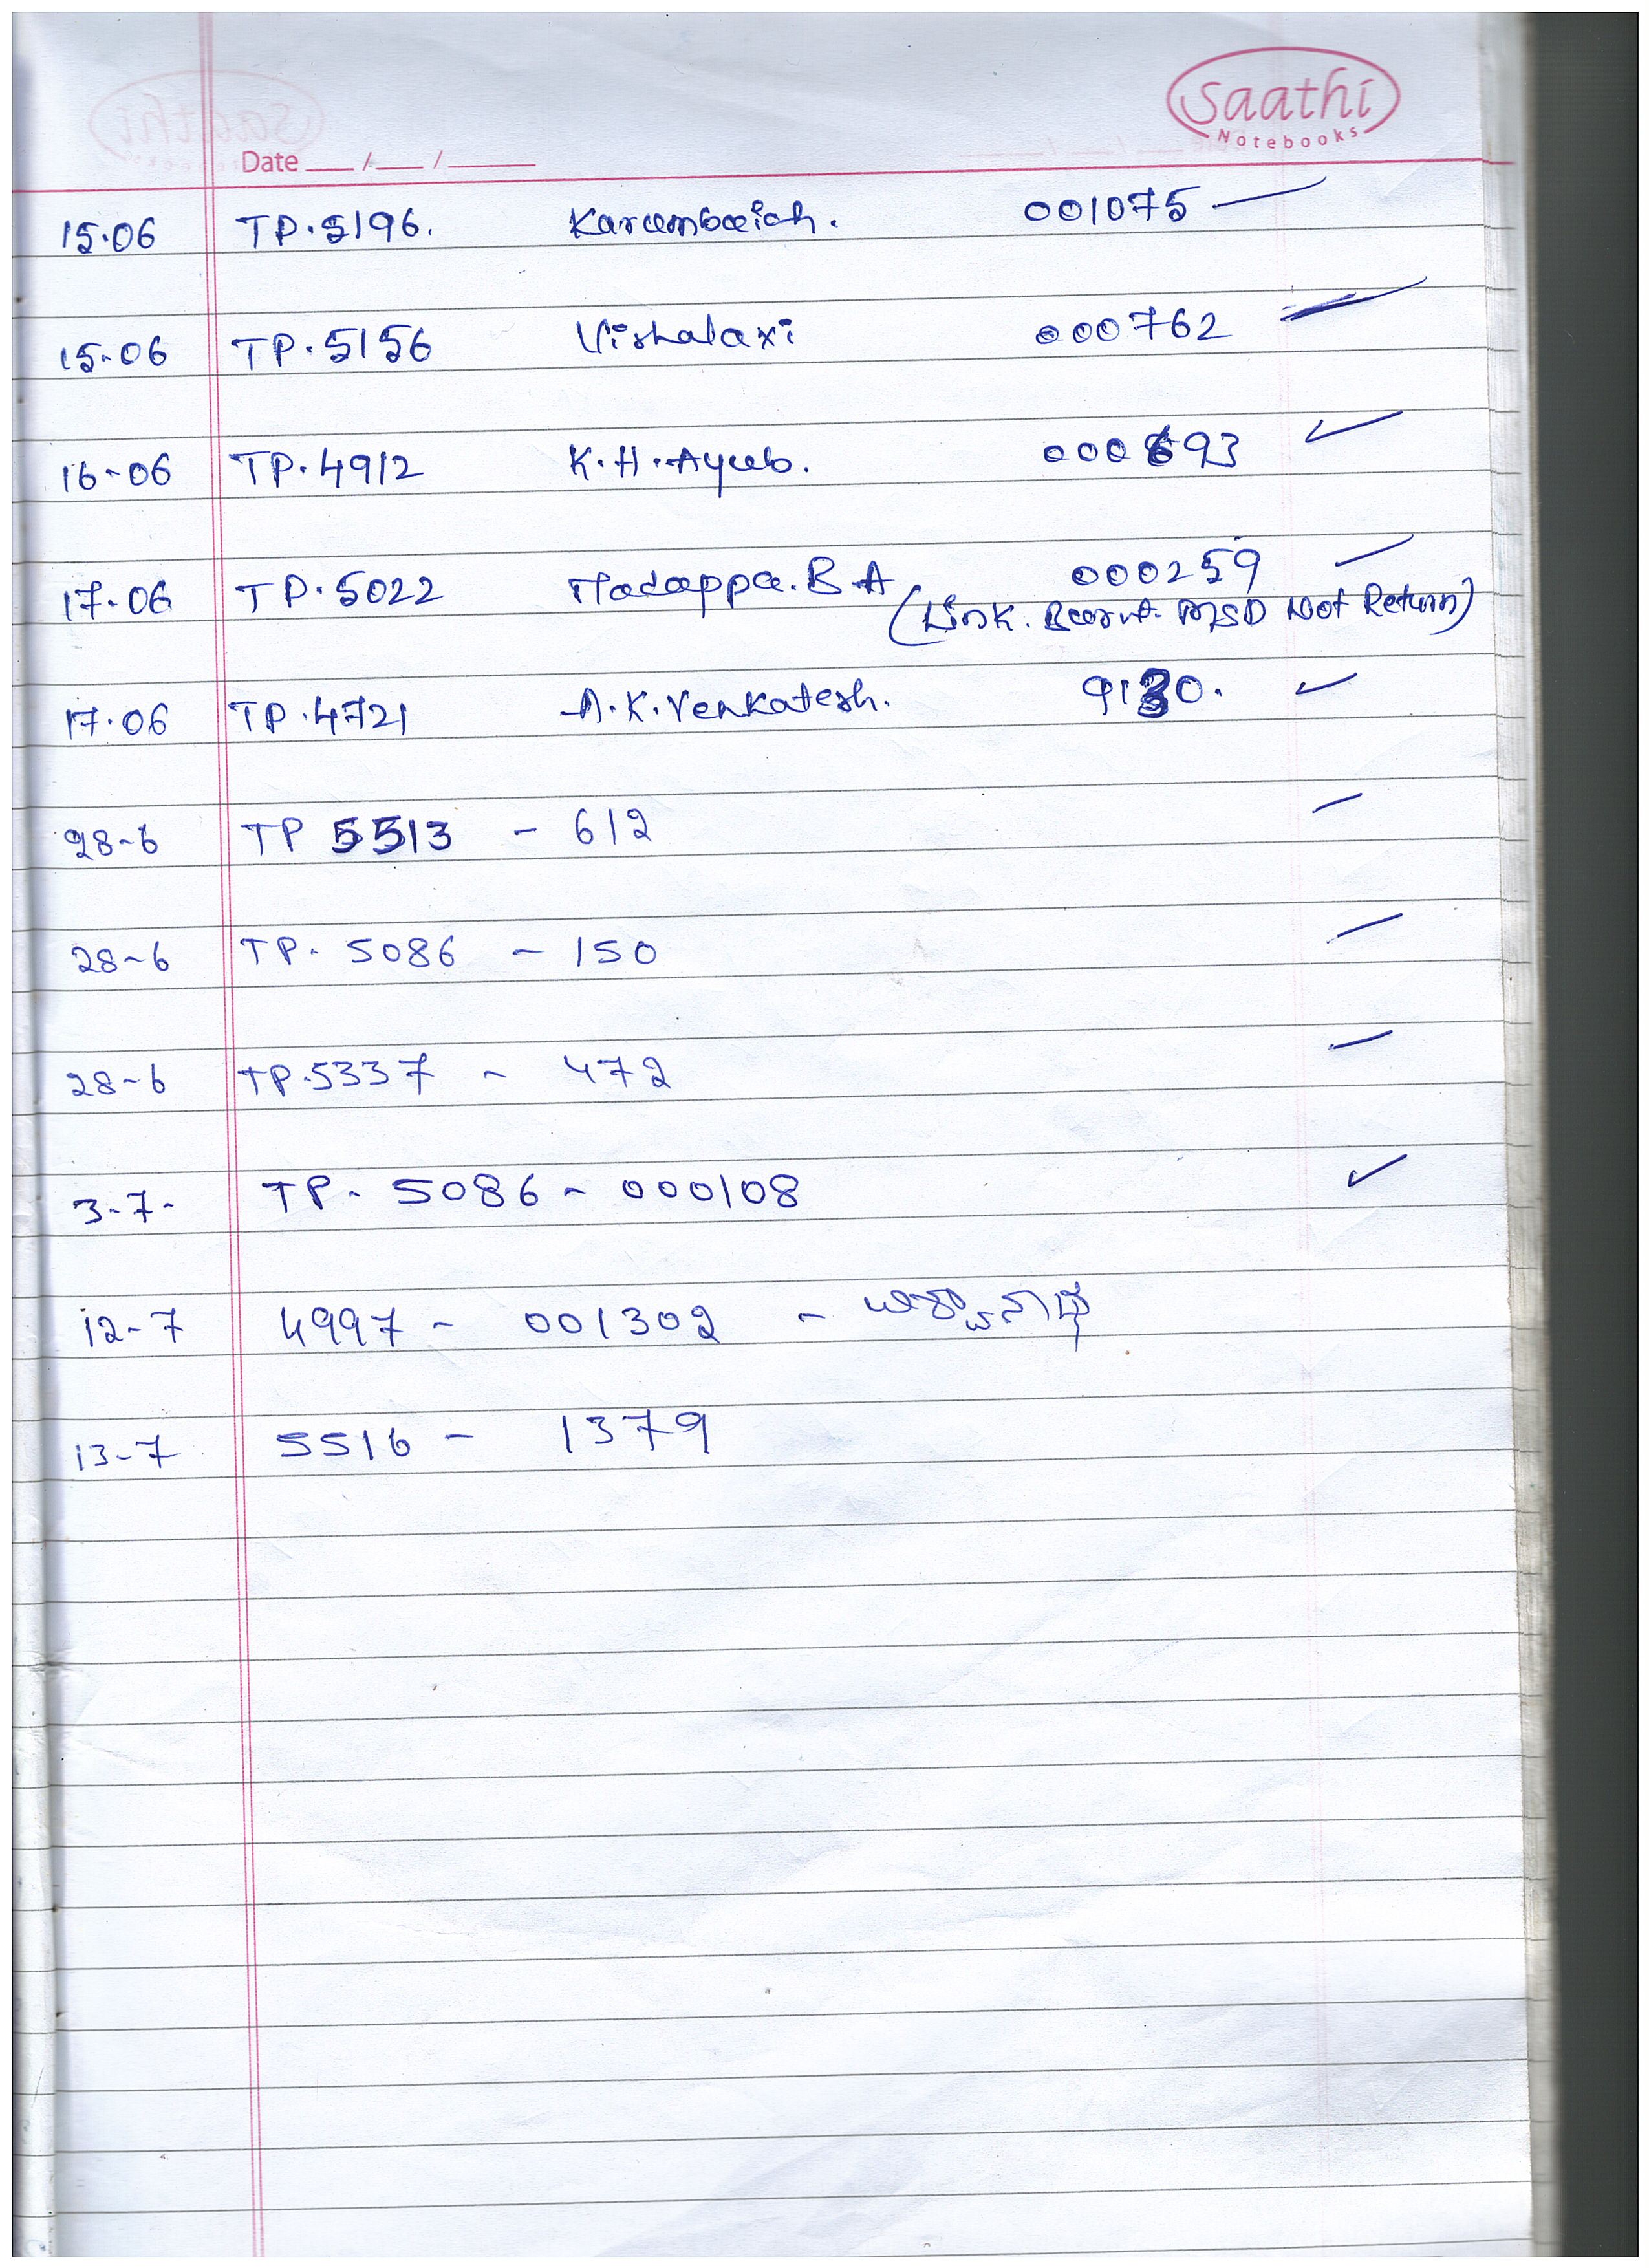 Saathi
Notebooks
Date ___ /___ /_____
15.06 TP.5196. Karumbaiah. 001075
15-06 TP.5156 Vishalaxi 000762
16-06 TP.4912 K.H.Ayub. 000693
17-06 TP.5022 Madappa.B.A 000259
(Link. MSD Not Return)
17.06 TP.4721 A.K.Venkatesh. 9130.
28-6 TP 5513 - 612
28-6 TP. 5086 - 150
28-6 TP.5337 - 472
3-7- TP. 5086 - 000108
12-7 4997 - 001302 -
13-7 5516 - 1379